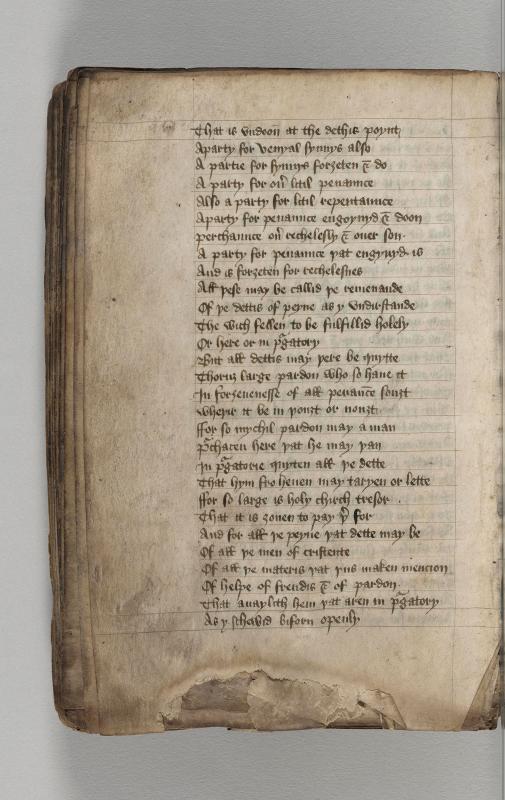 That is vndoon at the dethis poynt
Aparty for venyal synnys also
A partie for synnys forȝeten & do
A party for ou͛ litil penaunce
Also a party for litil repentaunce
Aparty for penaunce engoynyd & doon
perchaunce ou͛ rechelesly & ouer son
A party for penaunce yat engynyd is
And is forȝeten for rechelesnes
All yese may be callid ye remenande
Of ye dettis of peyne as y vndirstande
The wich fellen to be fulfillid holely
Or here or in pͥgatory
But all dettis may yere be quytte
Thoruȝ large pardon who so haue it
In forȝeuenesse of all penaūce souȝt
wheyir it be in yonȝt or nouȝt
ffor so mychil pardon may a man
Pͥchacen here yat he may yan
In pͥgatorie quyten all ye dette
That hym fro heuen may taryen or lette
ffor so large is holy chirch tresor
That it is ȝouen to pay yͬ for
And for all ye peyne yat dette may be
Of all ye men of cristente
Of all ye materis yat yus maken mencion
Of helpe of frendis & of pardon
That auaylith hem yat aren in pͥgatory
As y schewid biforn openly